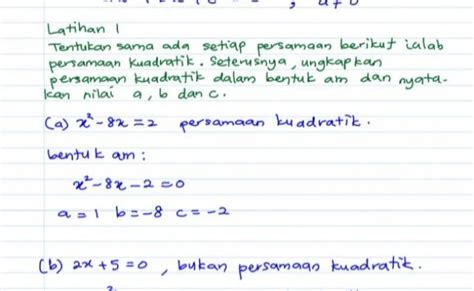 Latihan 1
Tentukan sama ada setiap persamaan berikut ialah
persamaan kuadratik. Seterusnya, ungkapkan
persamaan kuadratik dalam bentuk am dan nyata-
kan nilai a, b dan c.
(a) x² - 8x = 2 persamaan kuadratik.
bentuk am :
x² - 8x - 2 = 0
a = 1 b = -8 c = -2
(b) 2x + 5 = 0, bukan persamaan kuadratik.